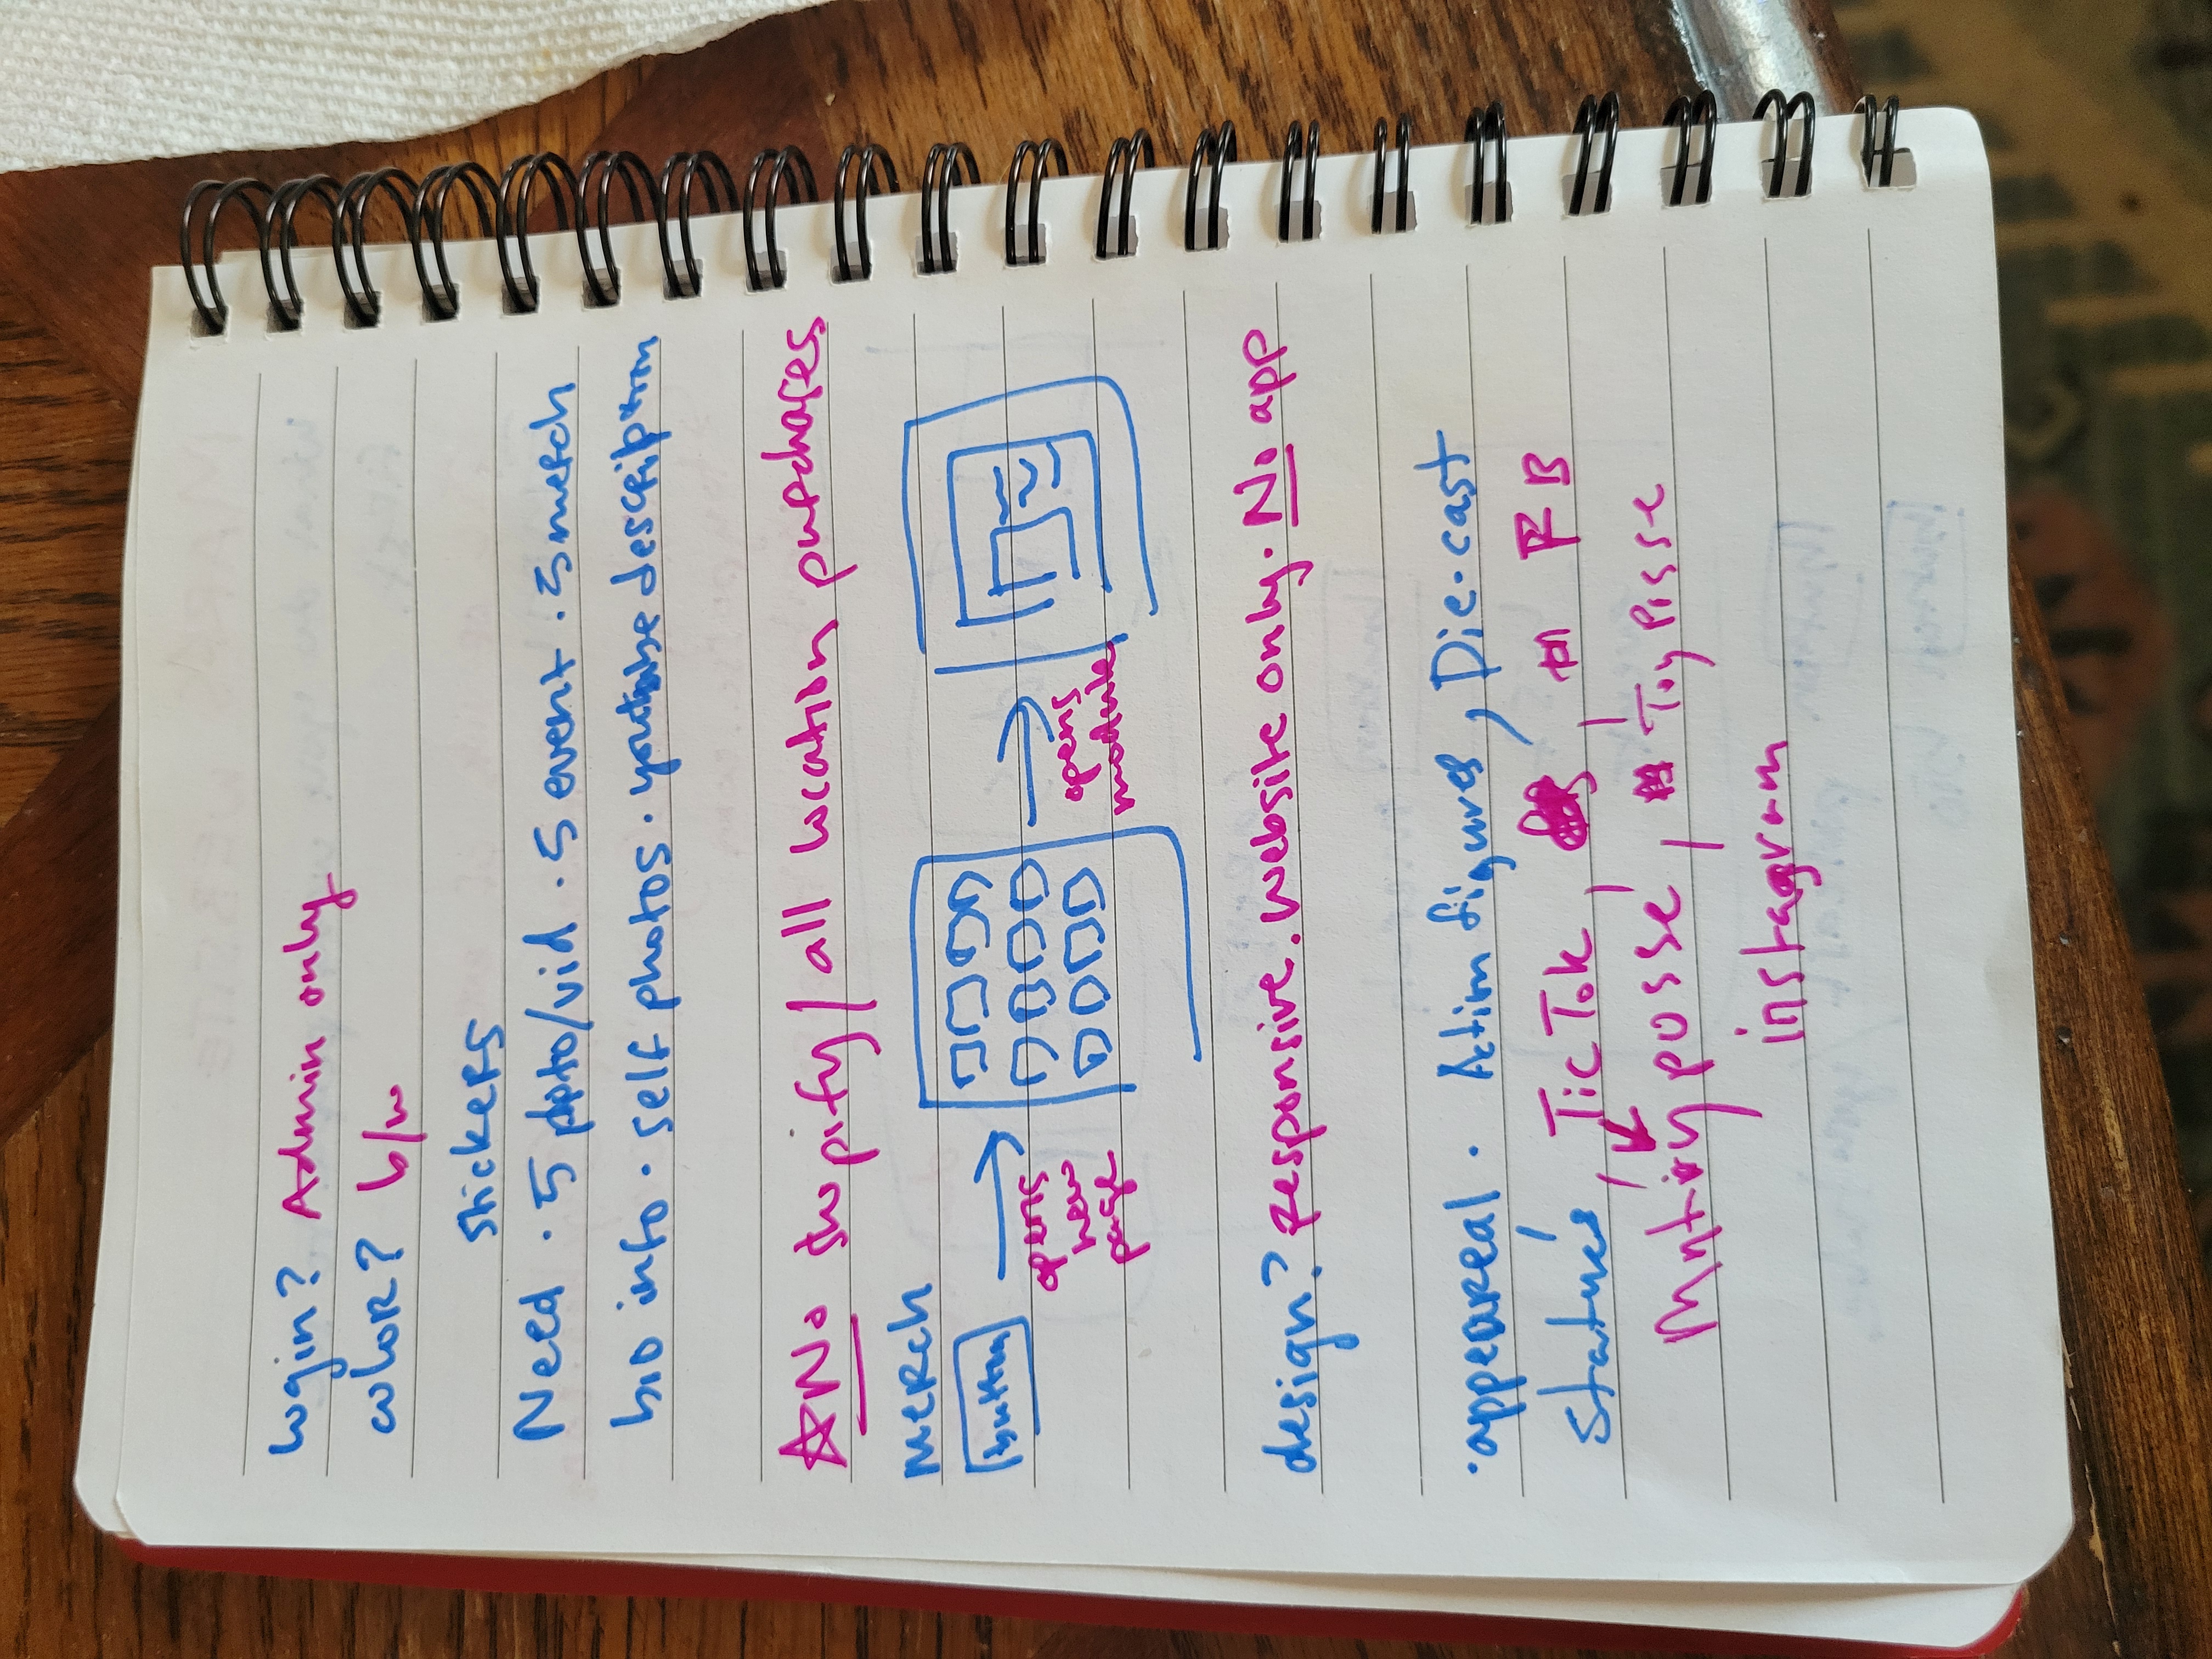 login? Admin only
color? b/w
stickers
Need · 5 photo/vid · 5 event · 5 merch
bio info · self photos · youtube description
No shopify / all location purchases
merch
button
opens
new
page
opens
module
design? Responsive. website only. No app
· appeareal · Action figures, Die-cast
statues, Tic Tok, FB
posse, Toy Posse
instagram